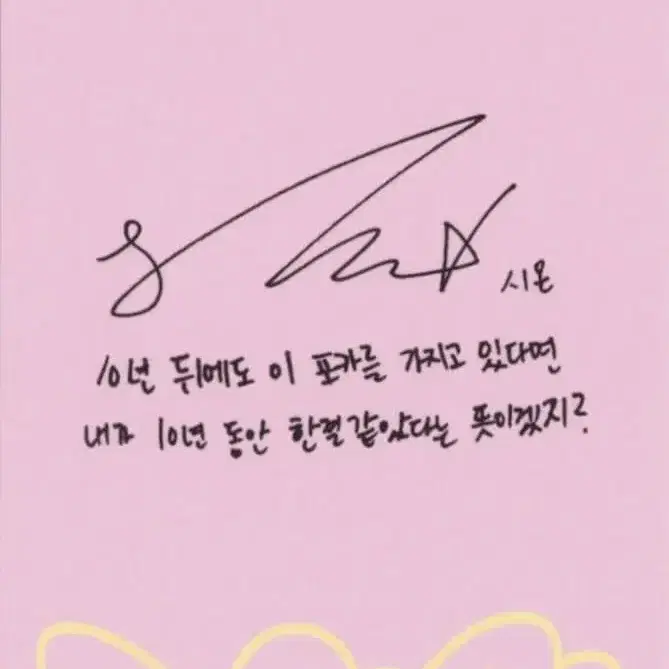 시온
10년 뒤에도 이 포카를 가지고 있다면
내가 10년 동안 한결같았다는 뜻이겠지?